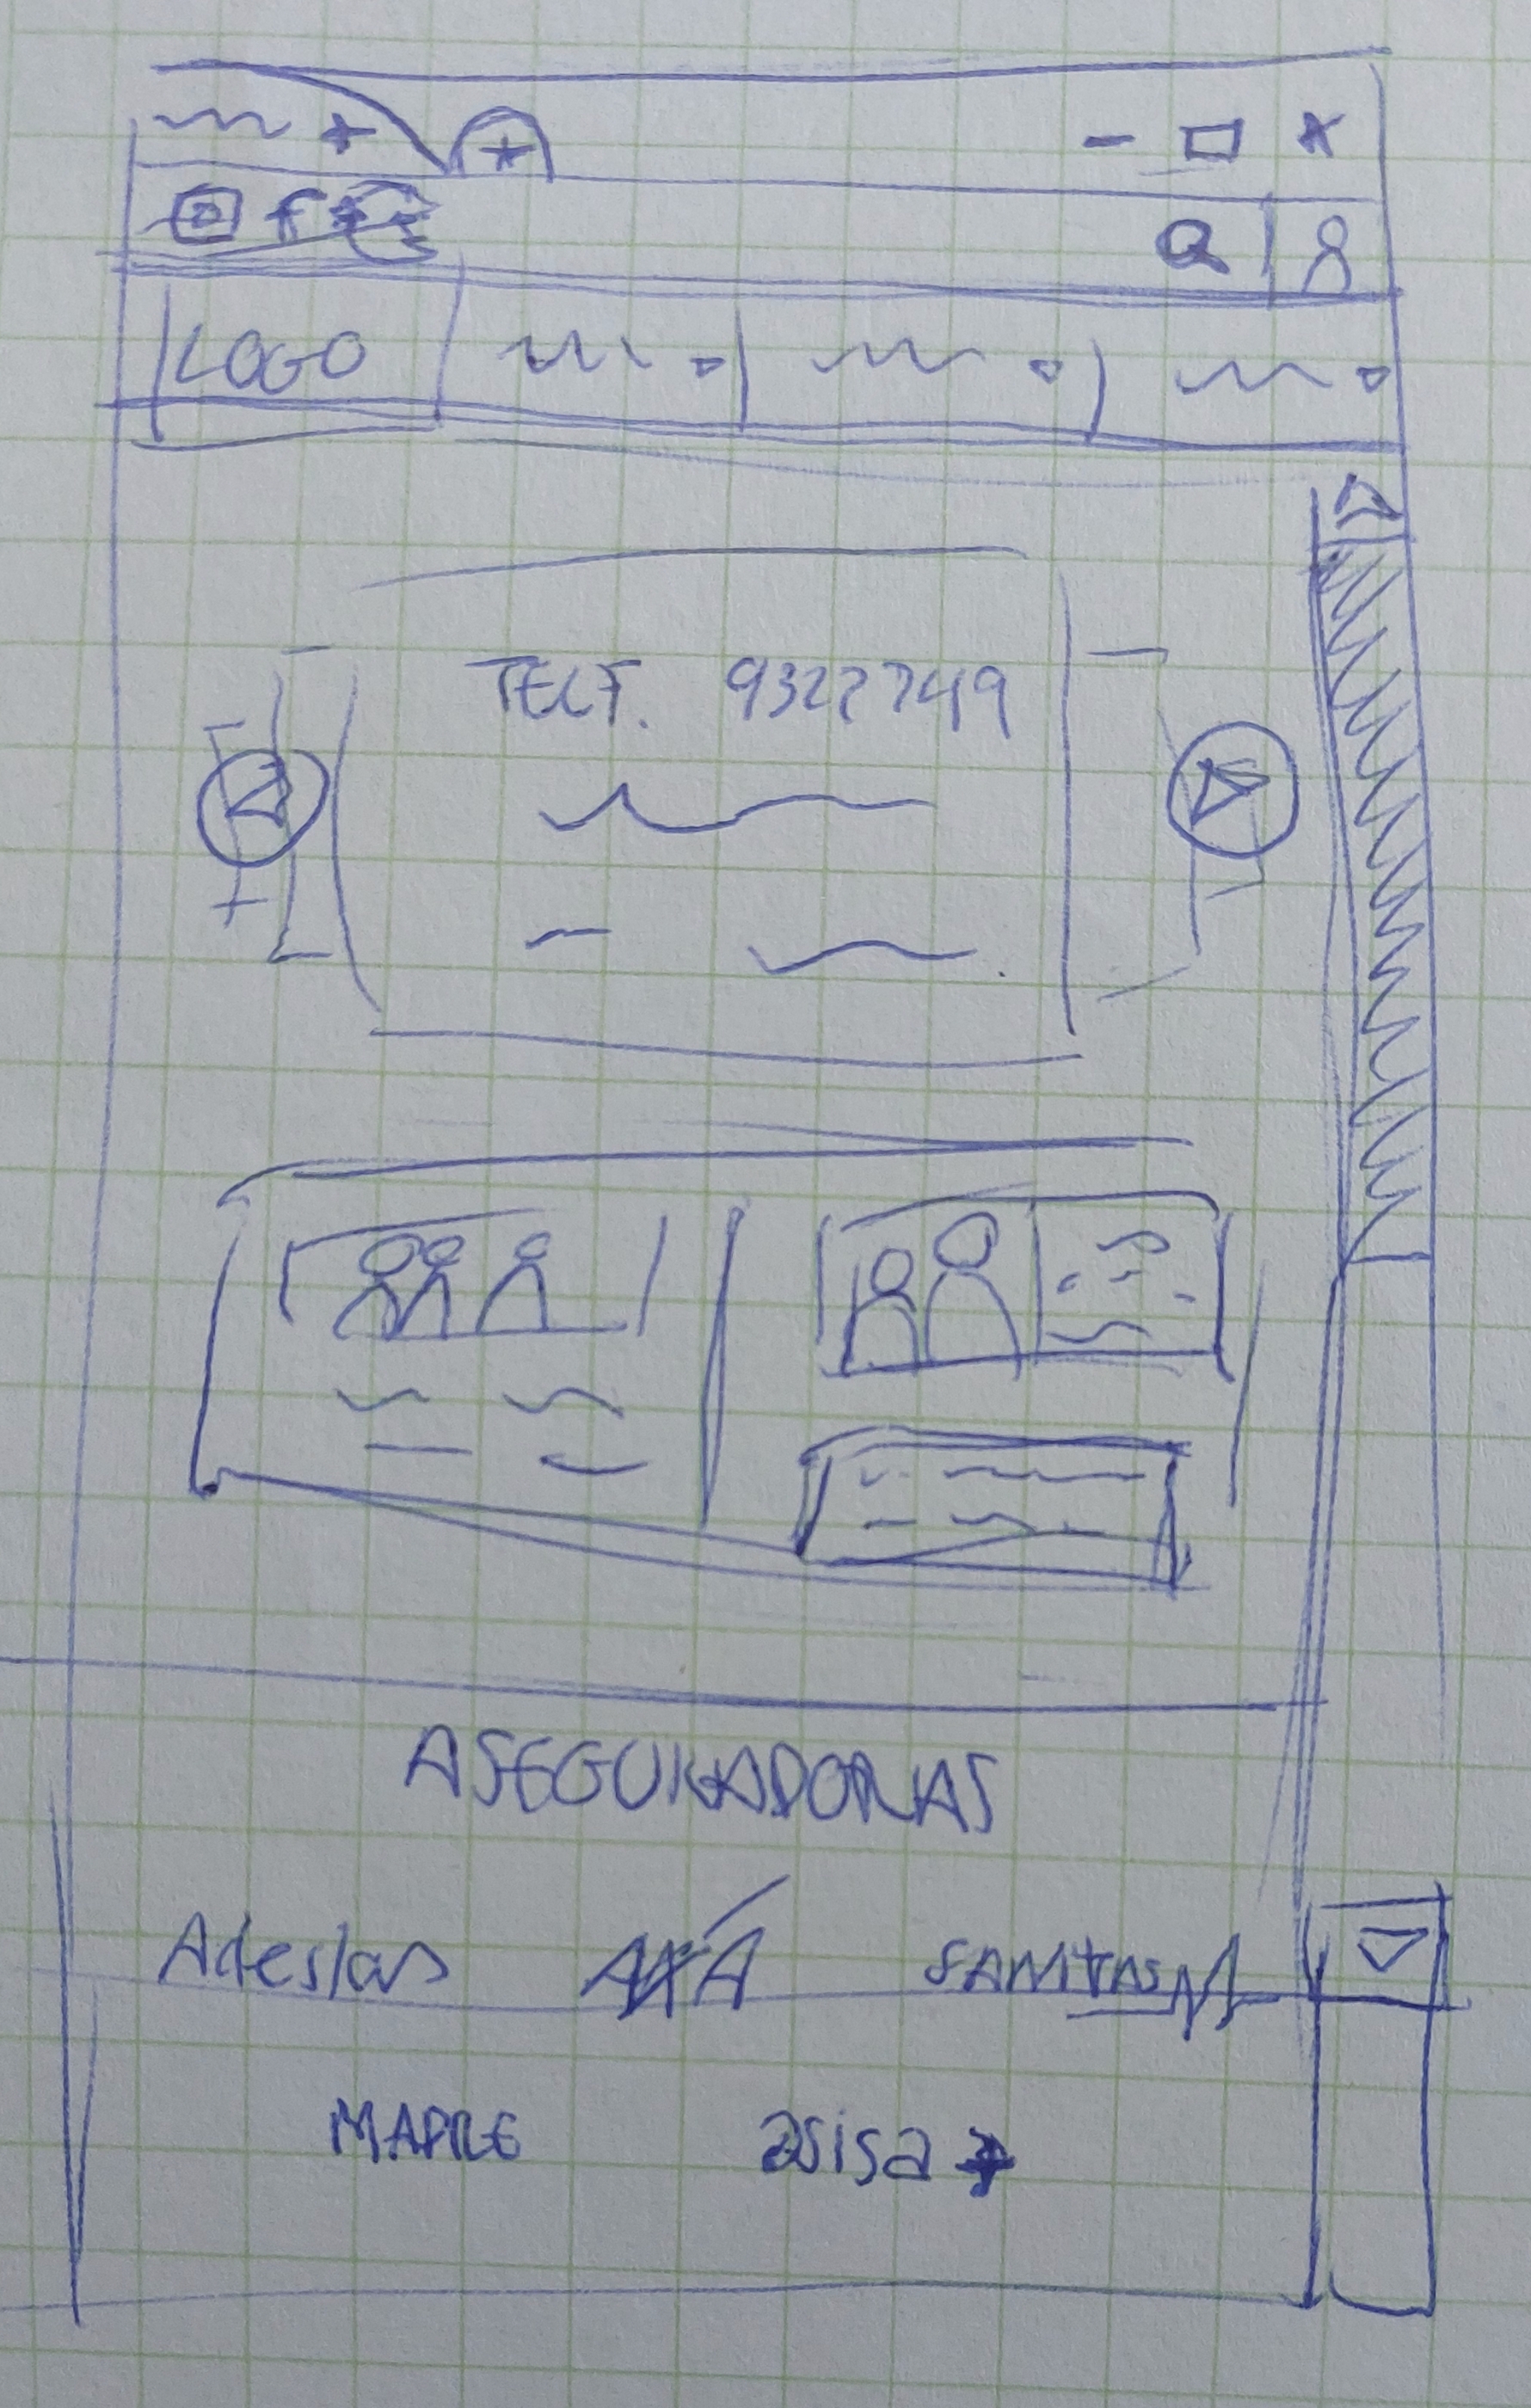 LOGO
TELF. 9322749
ASEGURADORAS
Adeslas AXA SANITAS
MAPRE asisa